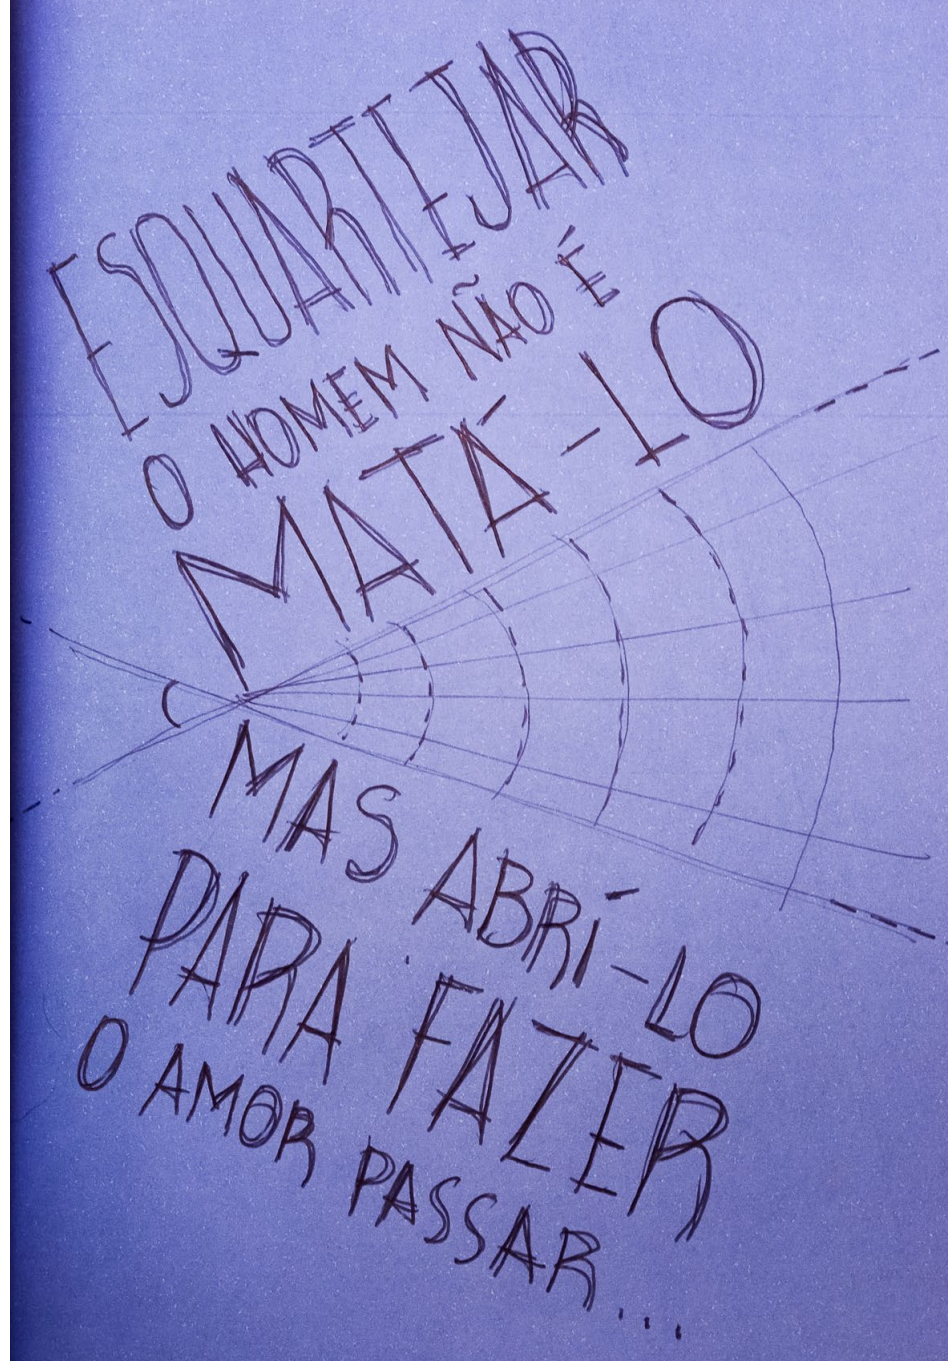 ESQUARTIJAR
O HOMEM NÃO É
MATÁ-LO
MAS ABRÍ-LO
PARA FAZER
O AMOR PASSAR...